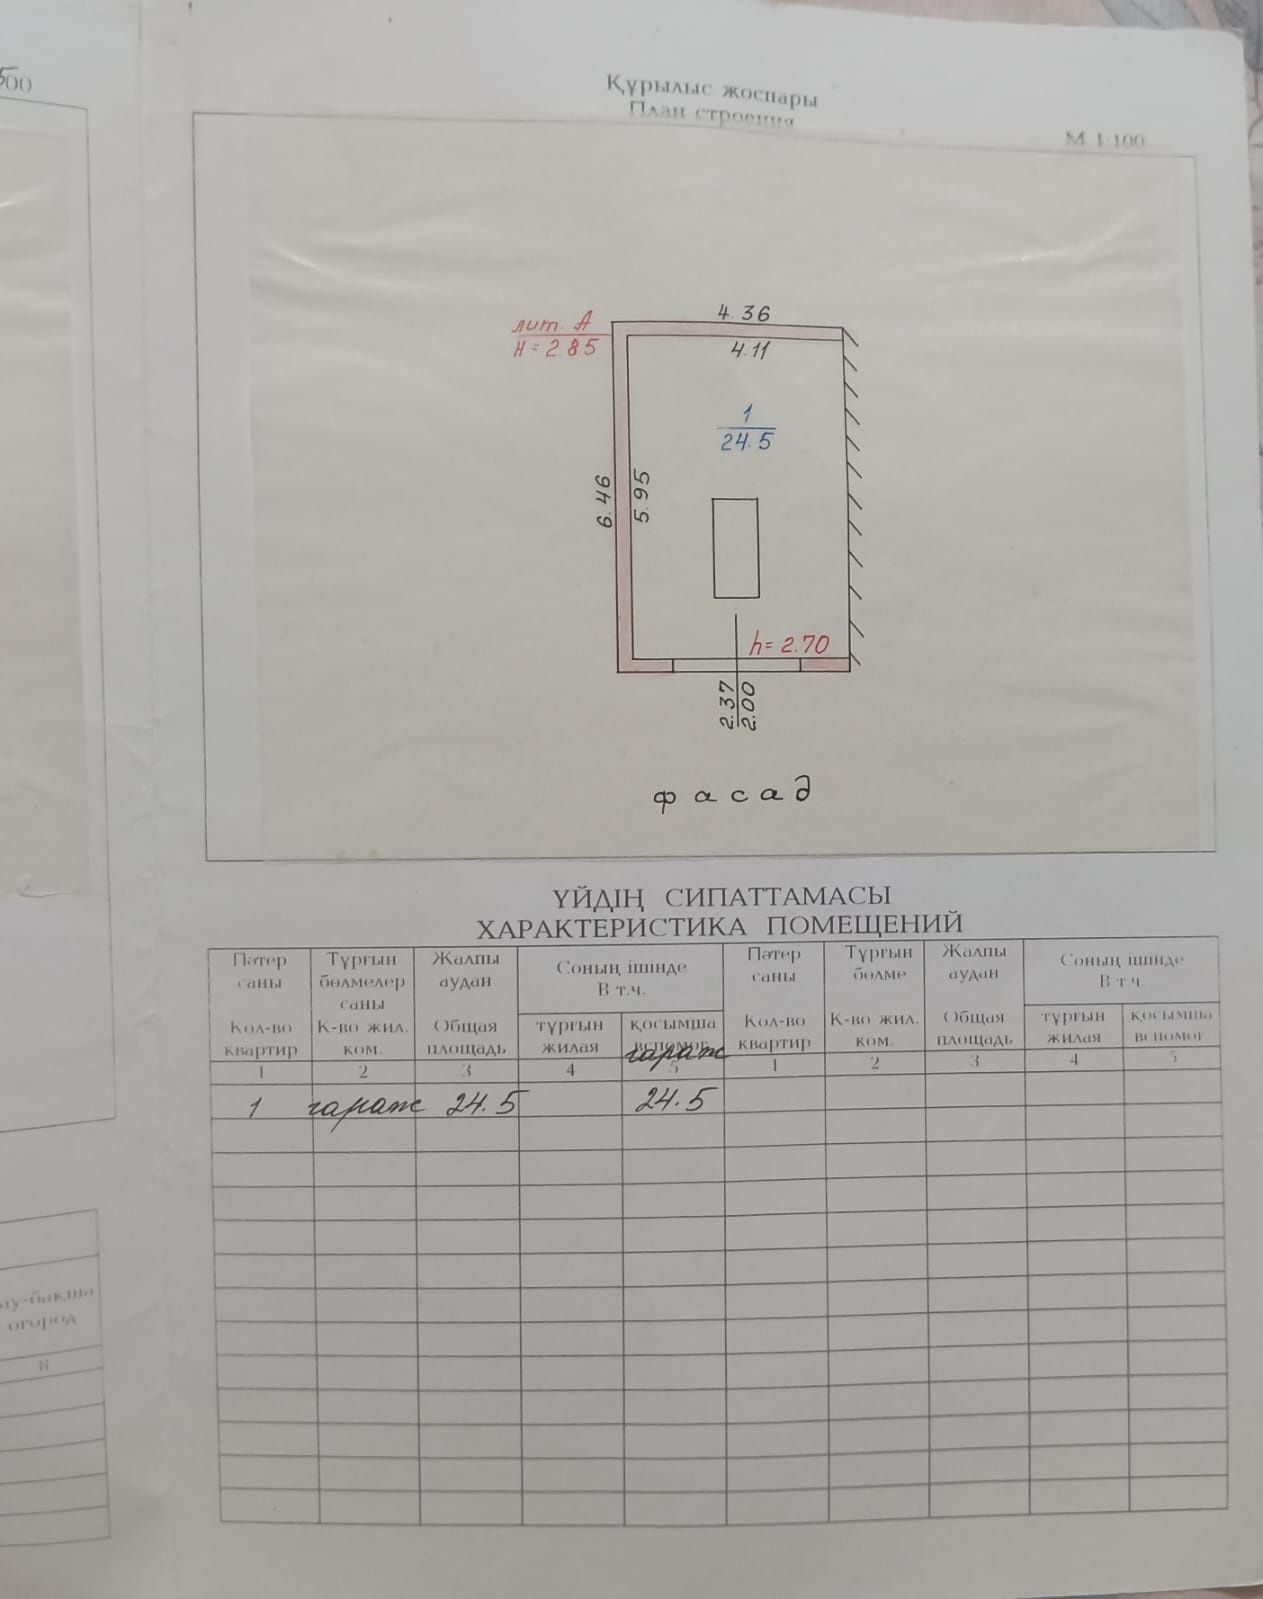 500
Құрылыс жоспары
План строения
М 1:100
лит. А
H = 2.85
4.36
4.11
1
24.5
6.46
5.95
h = 2.70
2.37
2.00
фасад
ҮЙДІҢ СИПАТТАМАСЫ
ХАРАКТЕРИСТИКА ПОМЕЩЕНИЙ
Пәтер саны Тұрғын бөлмелер саны Жалпы аудан Соның ішінде В т.ч. Пәтер саны Тұрғын бөлме Жалпы аудан Соның ішінде В т.ч.
Кол-во квартир К-во жил. ком. Общая площадь тұрғын жилая қосымша вспомог. Кол-во квартир К-во жил. ком. Общая площадь тұрғын жилая қосымша вспомог
гараж
1 2 3 4 5 1 2 3 4 5
1 гараж 24.5 24.5
ау-бақша
огород
8